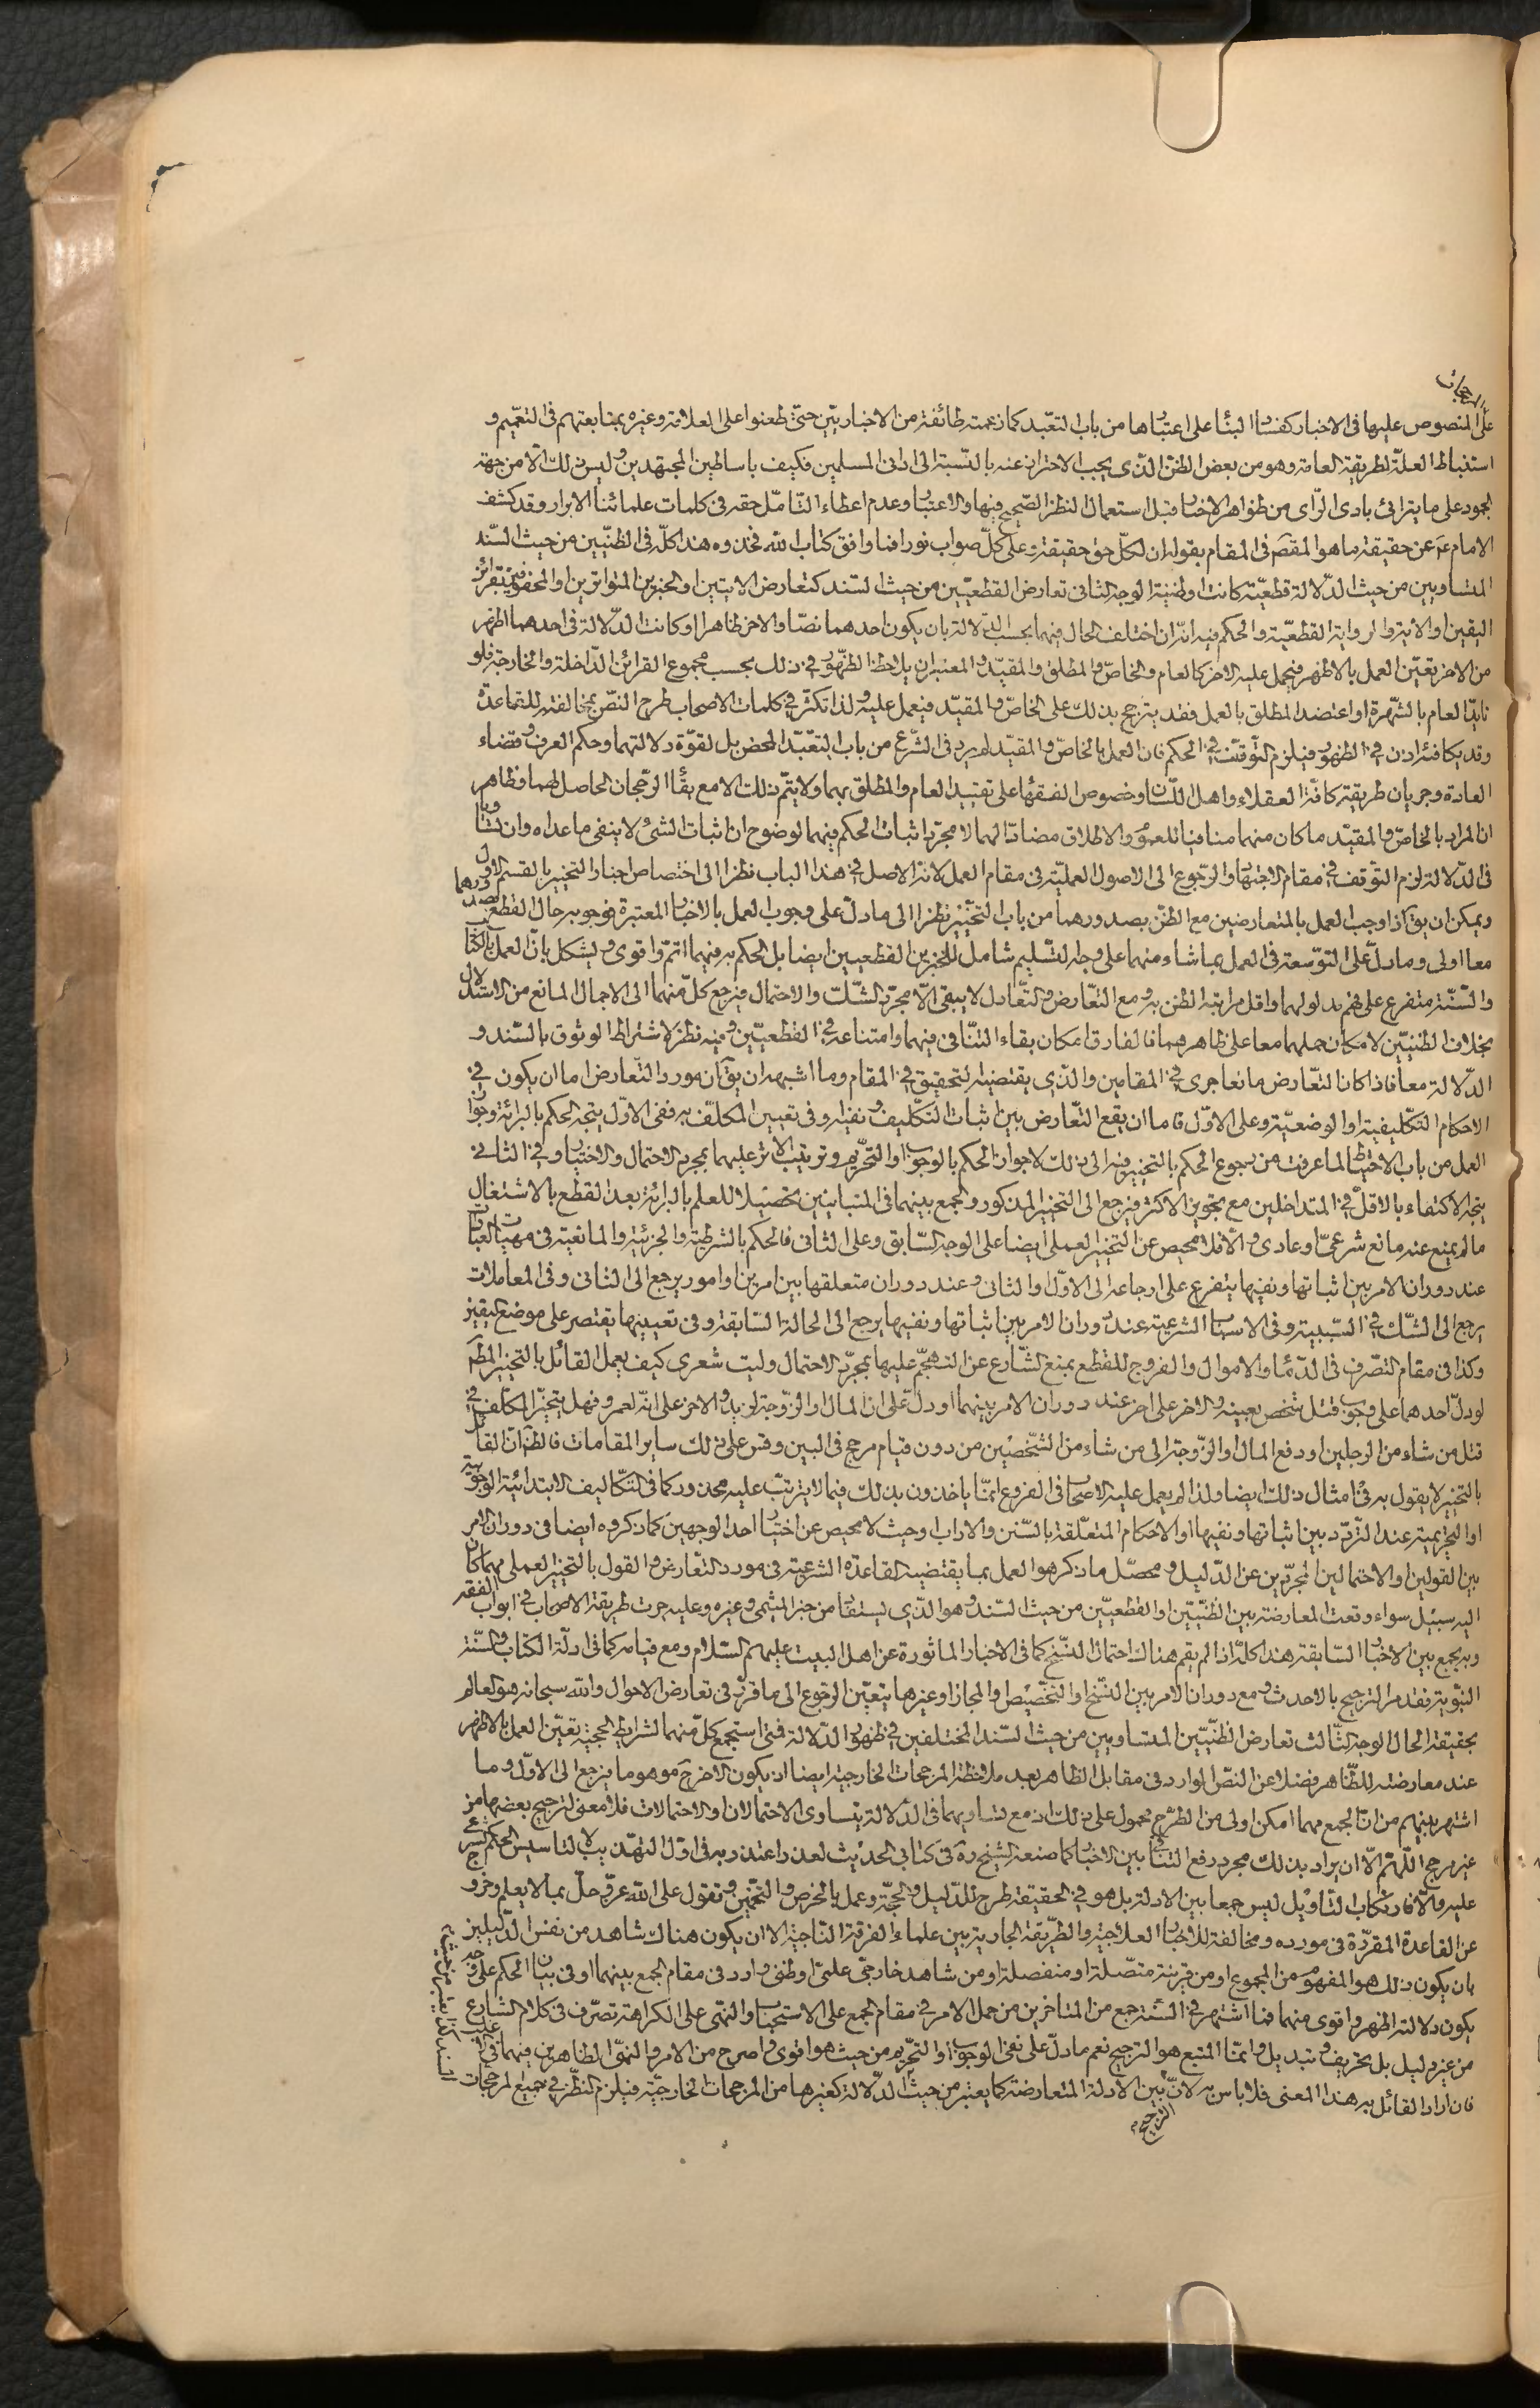 المرجحات
على المنصوص عليها فى الاخبار كفساد البناء على اعتبارها من باب التعبد كما زعمته طائفة من الاخباريين حتى طعنوا على العلامة وغيره بمتابعتهم فى التعميم و
استنباط العلة لطريقة العامة وهو من بعض الظن الذى يجب الاحتراز عنه بالنسبة الى ادانى المسلمين فكيف باساطين المجتهدين وليس ذلك الا من جهة
الجمود على ما يترائى بادى الراى من ظواهر الاخبار قبل استعمال النظر الصحيح فيها والاعتبار وعدم اعطاء التامل حقه فى كلمات علمائنا الابرار وقد كشف
الامام ع عن حقيقة ما هو المقص فى المقام بقوله ان لكل حق حقيقة وعلى كل صواب نورا فما وافق كتاب الله فخذوه هذا كله فى الظنيين من حيث السند
المتساويين من حيث الدلالة قطعية كانت او ظنية الوجه الثانى تعارض القطعيين من حيث السند كتعارض الايتين والخبرين المتواترين او المحفوفين بقرائن
اليقين او الاية والرواية القطعية والحكم فيه انه ان اختلف الحال فيهما بحسب الدلالة بان يكون احدهما نصا والاخر ظاهرا او كانت الدلالة فى احدهما اظهر
من الاخر تعين العمل بالاظهر فيحمل عليه الاخر كالعام والخاص والمطلق والمقيد والمعتبر ان يلاحظ الظهور فى ذلك بحسب مجموع القرائن الداخلة والخارجة فلو
تايد العام بالشهرة او اعتضد المطلق بالعمل فقد يترجح بذلك على الخاص والمقيد فيعمل عليه ولذا تكثر فى كلمات الاصحاب طرح النص بمخالفته للقاعدة
وقد يتكافئان فى الظهور فيلزم التوقف فى الحكم فان العمل بالخاص والمقيد لم يرد فى الشرع من باب التعبد المحض بل لقوة دلالتهما وحكم العرف وقضاء
العادة وجريان طريقة كافة العقلاء واهل اللسان وخصوص الفقهاء على تقييد العام والمطلق بهما ولا يتم ذلك الا مع بقاء الرجحان الحاصل لهما فظاهر
ان المراد بالخاص والمقيد ما كان منهما منافيا للعموم والاطلاق مضادا لهما لا مجرد اثبات الحكم فيهما لوضوح ان اثبات الشئ لا ينفى ما عداه وان تساويا
فى الدلالة لزم التوقف فى مقام الاجتهاد والرجوع الى الاصول العملية فى مقام العمل لانه الاصل فى هذا الباب نظرا الى اختصاص اخبار التخيير بالقسم الاول
ويمكن ان يق اذا وجب العمل بالمتعارضين مع الظن بصدورهما من باب التخيير نظرا الى ما دل على وجوب العمل بالاخبار المعتبرة فوجوبه حال القطع بصدورهما
معا اولى وما دل على التوسعة فى العمل بما شاء منهما على وجه التسليم شامل للخبرين القطعيين ايضا بل الحكم به فيهما اتم واقوى ويشكل بان العمل بالكتاب
والسنة متفرع على فهم مدلولهما واقل مراتبه الظن به ومع التعارض والتعادل لا يبقى الا مجرد الشك والاحتمال فيرجع كل منهما الى الاجمال المانع من الاستدلال
بخلاف الظنيين لامكان حملهما معا على ظاهرهما فالفارق امكان بقاء التنافى فيهما وامتناعه فى القطعيين وفيه نظر لاشتراط الوثوق بالسند و
الدلالة معا فاذا كان التعارض مانعا جرى فى المقامين والذى يقتضيه التحقيق فى المقام وما اشبهه ان يق ان مورد التعارض اما ان يكون فى
الاحكام التكليفية او الوضعية وعلى الاول فاما ان يقع التعارض بين اثبات التكليف ونفيه او فى تعيين المكلف به ففى الاول يتجه الحكم بالبرائة وجواز
العمل من باب الاحتياط لما عرفت من رجوع الحكم بالتخيير فيه الى ذلك لا جواز الحكم بالوجوب او التحريم وترتيب الاثر عليهما بمجرد الاحتمال والاختيار وفى الثانى
يتجه الاكتفاء بالاقل فى المتداخلين مع تجويز الاكثر فيرجع الى التخيير المذكور والجمع بينهما فى المتباينين تحصيلا للعلم بالبرائة بعد القطع بالاشتغال
ما لم يمنع عنه مانع شرعى او عادى والا فلا محيص عن التخيير العملى ايضا على الوجه السابق وعلى الثانى فالحكم بالشرطية والجزئية والمانعية فى مهيات العبادات
عند دوران الامر بين اثباتها ونفيها يتفرع على ارجاعه الى الاول او الثانى وعند دوران متعلقها بين امرين او امور يرجع الى الثانى وفى المعاملات
يرجع الى الشك فى السببية وفى الاسباب الشرعية عند دوران الامر بين اثباتها ونفيها يرجع الى الحالة السابقة وفى تعيينها يقتصر على موضع اليقين
وكذا فى مقام التصرف فى الدماء والاموال والفروج للقطع بمنع الشارع عن التهجم عليها بمجرد الاحتمال وليت شعرى كيف يعمل القائل بالتخيير المطم
لو دل احدهما على وجوب قتل شخص بعينه والاخر على اخر عند دوران الامر بينهما او دل على ان المال او الزوجة لزيد والاخر على انه لعمرو فهل يتخير المكلف فى
قتل من شاء من الرجلين او دفع المال والزوجة الى من شاء من الشخصين من دون قيام مرجح فى البين وقس على ذلك ساير المقامات فالظ ان القائل
بالتخيير لا يقول به فى امثال ذلك ايضا ولذا لم يعمل عليه الاصحاب فى الفروع انما ياخذون بذلك فيما لا يترتب عليه محذور كما فى التكاليف الابتدائية الوجوبية
او التحريمية عند التردد بين اثباتها ونفيها او الاحكام المتعلقة بالسنن والاداب او حيث لا محيص عن اختيار احد الوجهين كما ذكروه ايضا فى دوران الامر
بين القولين او الاحتمالين المجردين عن الدليل ومحصل ما ذكر هو العمل بما يقتضيه القاعدة الشرعية فى مورد التعارض والقول بالتخيير العملى مهما كان
اليه سبيل سواء وقعت المعارضة بين الظنيين او القطعيين من حيث السند وهو الذى يستفاد من خبر الميثمى وغيره وعليه جرت طريقة الاصحاب فى ابواب الفقه
وبه يجمع بين الاخبار السابقة هذا كله اذا لم يقم هناك احتمال النسخ كما فى الاخبار الماثورة عن اهل البيت عليهم السلام ومع قيامه كما فى ادلة الكتاب والسنة
النبوية فقد مر الترجيح بالاحدث ومع دوران الامر بين النسخ او التخصيص والمجاز او غيرها يتعين الرجوع الى ما قرر فى تعارض الاحوال والله سبحانه هو العالم
بحقيقة الحال الوجه الثالث تعارض الظنيين المتساويين من حيث السند المختلفين فى ظهور الدلالة فمتى استجمع كل منهما لشرايط الحجية تعين العمل بالاظهر
عند معارضته للظاهر فضلا عن النص الوارد فى مقابل الظاهر بعد ملاحظة المرجحات الخارجية ايضا اذ يكون الاخر ح موهوما فيرجع الى الاول وما
اشتهر بينهم من ان الجمع مهما امكن اولى من الطرح محمول على ذلك اذ مع تساويهما فى الدلالة يتساوى الاحتمالان او الاحتمالات فلا معنى لترجيح بعضها من
غير مرجح اللهم الا ان يراد بذلك مجرد رفع التنافى بين الاخبار كما صنعه الشيخ ره فى كتابى الحديث لعذر اعتذر به فى اول التهذيب لا لتاسيس الحكم الشرعى
عليه والا فارتكاب التاويل ليس جمعا بين الادلة بل هو فى الحقيقة طرح للدليل والحجة وعمل بالخرص والتخمين وتقول على الله عز وجل بما لا يعلم وخروج
عن القاعدة المقررة فى مورده ومخالفة للاخبار العلاجية والطريقة الجارية بين علماء الفرقة الناجية الا ان يكون هناك شاهد من نفس الدليلين
بان يكون ذلك هو المفهوم من المجموع او من قرينة متصلة او منفصلة او من شاهد خارجى علمى او ظنى وارد فى مقام الجمع بينهما او فى بيان الحكم على وجه
يكون دلالته اظهر واقوى منهما فما اشتهر فى السنة جمع من المتاخرين من حمل الامر فى مقام الجمع على الاستحباب والنهى على الكراهة تصرف فى كلام الشارع
من غير دليل بل تحريف وتبديل وانما المتبع هو الترجيح نعم ما دل على نفى الوجوب او التحريم من حيث هو اقوى واصرح من الامر والنهى الظاهرين فيهما
فان اراد القائل به هذا المعنى فلا باس به لان الترجيح بين الادلة المتعارضة كما يعتبر من حيث الدلالة كغيرها من المرجحات الخارجية فيلزم النظر فى جميع المرجحات